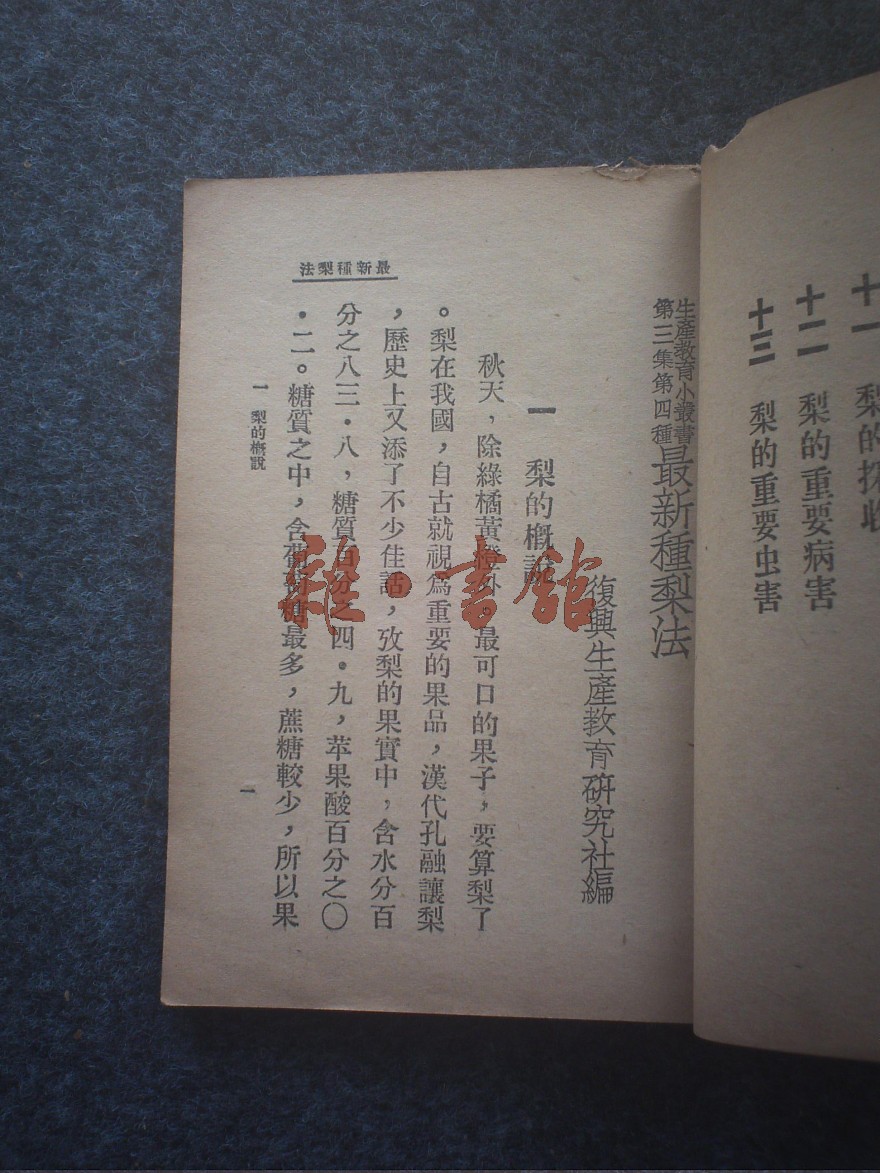 十一 梨的採收
十二 梨的重要病害
十三 梨的重要虫害
生產教育小叢書
第三集第四種
最新種梨法
復興生產教育研究社編
一 梨的概說
秋天，除綠橘黃橙外，最可口的果子，要算梨了
。梨在我國，自古就視爲重要的果品，漢代孔融讓梨
，歷史上又添了不少佳話，攷梨的果實中，含水分百
分之八三·八，糖質百分之四·九，苹果酸百分之〇
·二。糖質之中，含葡萄糖最多，蔗糖較少，所以果
最新種梨法
一 梨的概說
一
雜·書館